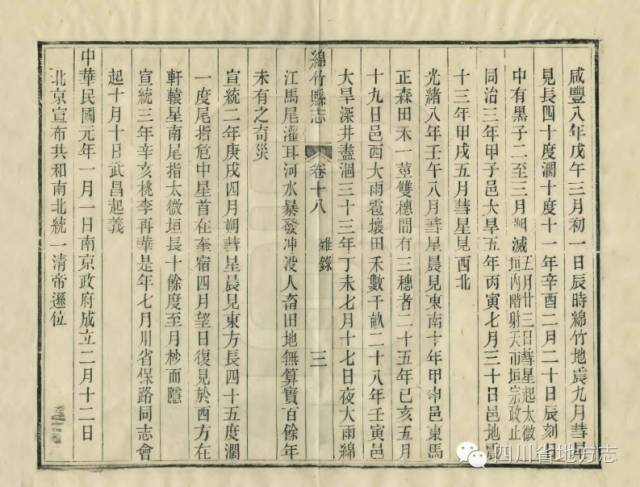 咸豐八年戊午三月初一日辰時綿竹地震九月彗星
見長四十度濶十度十一年辛酉二月二十日辰刻日
中有黑子二至三月朔滅五月廿三日彗星起太微垣內階射天市垣宗政止
同治三年甲子邑大旱五年丙寅七月三十日邑地震
十三年甲戌五月彗星見西北
光緒八年壬午八月彗星晨見東南十年甲申邑東馬
正森田禾一莖雙穗間有三穗者二十五年己亥五月
十九日邑西大雨雹壞田禾數千畝二十八年壬寅邑
大旱深井盡涸三十三年丁未七月十七日夜大雨綿
綿竹縣志 卷十八 雜錄 三
江馬尾灌耳河水暴發冲没人畜田地無算實百餘年
未有之奇災
宣統二年庚戌四月朔彗星晨見東方長四十五度濶
一度尾指危中星首在奎宿四月望日復見於西方在
軒轅星南尾指太微垣長十餘度至月杪而隱
宣統三年辛亥桃李再華是年七月川省保路同志會
起十月十日武昌起義
中華民國元年一月一日南京政府成立二月十二日
北京宣布共和南北統一清帝遜位
四川省地方志